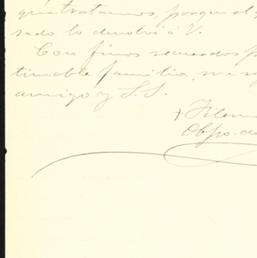 que tratamos, porque al p
sado lo demás á V.
Con finos recuerdos p
timable familia, me re
amigo y S.S.
+ Filem
Obpo. de